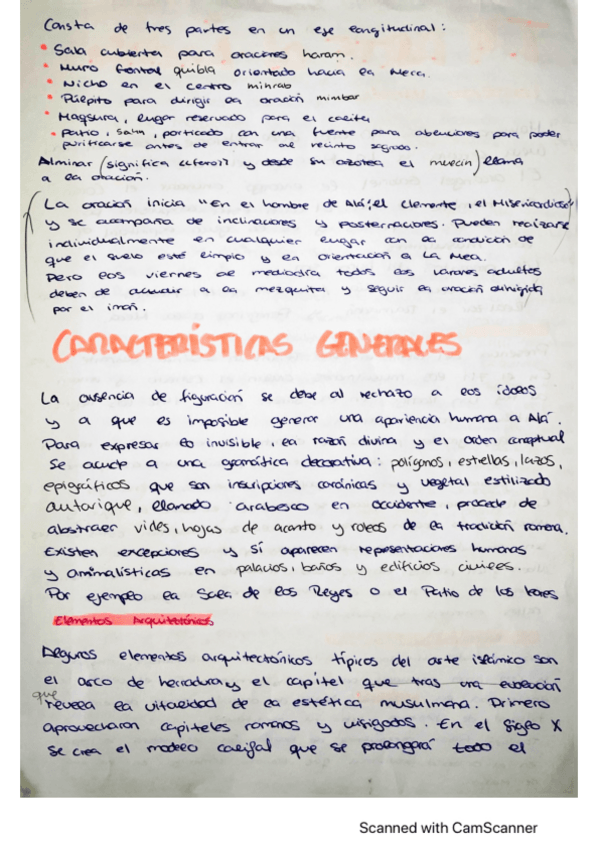 Consta de tres partes en un eje longitudinal:
• Sala cubierta para oraciones haram.
• Muro frontal quibla orientado hacia la Meca.
• Nicho en el centro mihrab
• Púlpito para dirigir la oración mimbar
• Maqsura, lugar reservado para el califa
• Patio, sahn, porticado con una fuente para abluciones para poder
purificarse antes de entrar al recinto sagrado.
Alminar (significa faro) y desde su azotea el muecín) llama
a la oración.
La oración inicia "En el nombre de Alá, el Clemente, el Misericordioso"
y se acompaña de inclinaciones y posternaciones. Pueden realizarse
individualmente en cualquier lugar con la condición de
que el suelo esté limpio y en orientación a La Meca.
Pero los viernes al mediodía todos los varones adultos
deben de acudir a la mezquita y seguir la oración dirigida
por el imán.
CARACTERÍSTICAS GENERALES
La ausencia de figuración se debe al rechazo a los ídolos
y a que es imposible generar una apariencia humana a Alá.
Para expresar lo invisible, la razón divina y el orden conceptual
se acude a una geométrica decorativa: polígonos, estrellas, lazos,
epigráficos que son inscripciones coránicas y vegetal estilizado
autorique, llamado arabesco en occidente, procede de
abstraer vides, hojas de acanto y roleos de la tradición romana.
Existen excepciones y sí aparecen representaciones humanas
y animalísticas en palacios, baños y edificios civiles.
Por ejemplo la Sala de los Reyes o el Patio de los leones
Elementos Arquitetónicos
Algunos elementos arquitectónicos típicos del arte islámico son
el arco de herradura y el capitel que tras una evolución
que revela la vitalidad de la estética musulmana. Primero
aprovecharon capiteles romanos y visigodos. En el siglo X
se crea el modelo califal que se prolongará todo el
Scanned with CamScanner